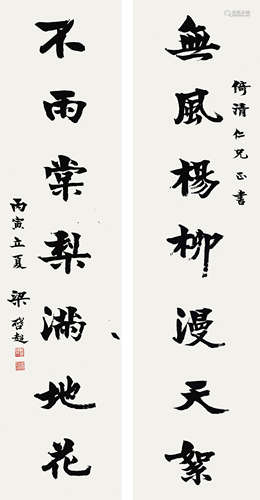 無風楊柳漫天絮
倚清仁兄正書
不雨棠梨滿地花
丙寅立夏
梁啓超